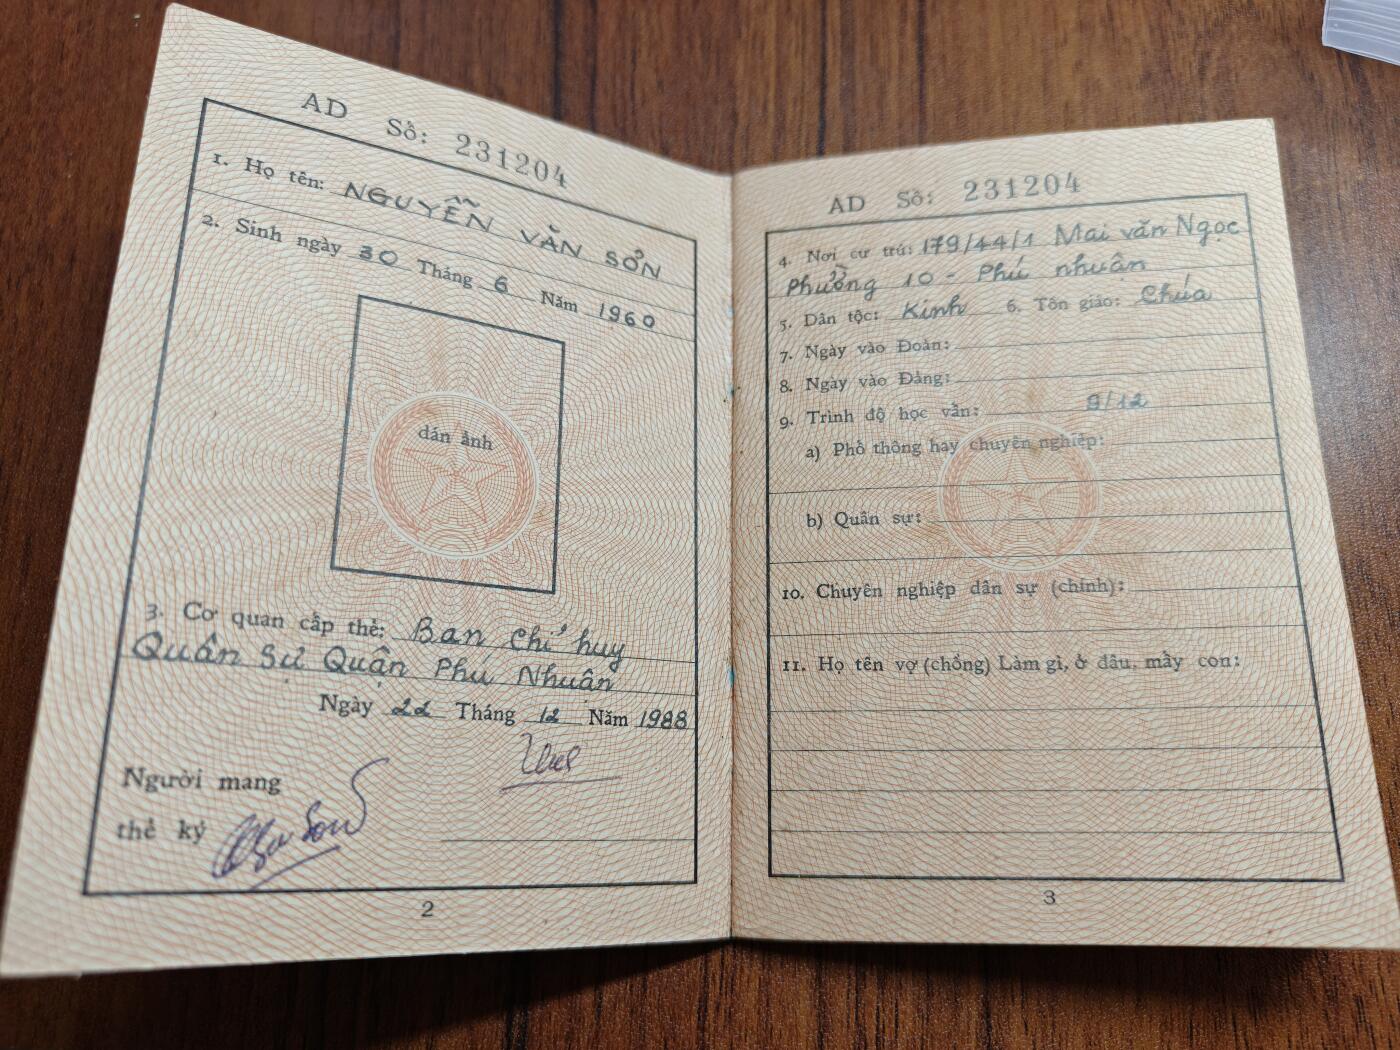 AD Số: 231204
1. Họ tên: NGUYỄN VĂN SƠN
2. Sinh ngày 30 Tháng 6 Năm 1960
dán ảnh
3. Cơ quan cấp thẻ: Ban chỉ huy
Quân sư Quận Phu Nhuân
Ngày 22 Tháng 12 Năm 1988
Người mang
thẻ ký
2
AD Số: 231204
4. Nơi cư trú: 179/44/1 Mai văn Ngọc
Phường 10 - Phú nhuân
5. Dân tộc: Kinh 6. Tôn giáo: Chúa
7. Ngày vào Đoàn:
8. Ngày vào Đảng:
9. Trình độ học vấn: 9/12
a) Phổ thông hay chuyên nghiệp:
b) Quân sự:
10. Chuyên nghiệp dân sự (chính):
11. Họ tên vợ (chồng) Làm gì, ở đâu, mấy con:
3